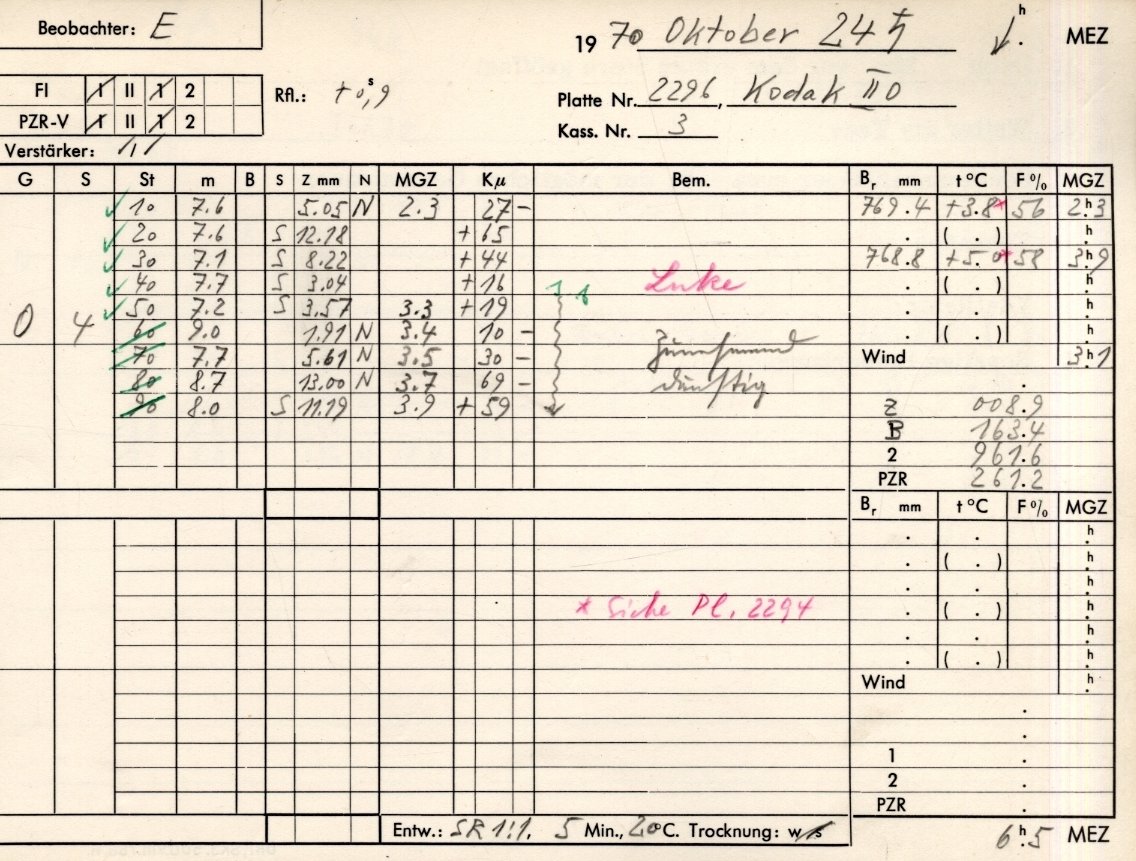 Beobachter: E
19 70 Oktober 24 ♄ h . MEZ
FI I II 1 2
PZR-V I II 1 2
Rfl.: + 0,s9
Platte Nr. 2296, Kodak II0
Kass. Nr. 3
Verstärker:
G S St m B S Z mm N MGZ Kμ Bem. Br mm t °C F % MGZ
10 7.6 5.05 N 2.3 27 - 769.4 +3.8* 56 2h.3
20 7.6 S 12.18 + 65 . ( . ) h.
30 7.1 S 8.22 + 44 768.8 +5.0* 58 3h.9
40 7.7 S 3.04 + 16 Luke . ( . ) h.
0 4 50 7.2 S 3.57 3.3 + 19 . . h.
60 9.0 1.91 N 3.4 10 - . ( . ) h.
70 7.7 5.61 N 3.5 30 - Zunehmend Wind 3h.1
80 8.7 13.00 N 3.7 69 - dunstig .
90 8.0 S 11.19 3.9 + 59 Z 008.9
B 163.4
2 961.6
PZR 261.2
Br mm t °C F % MGZ
. . h.
. ( . ) h.
. . h.
* Siehe Pl. 2294 . ( . ) h.
. . h.
. ( . ) h.
Wind h.
.
.
1 .
2 .
PZR .
Entw.: SR 1:1. 5 Min., 20°C. Trocknung: w/s 6h.5 MEZ